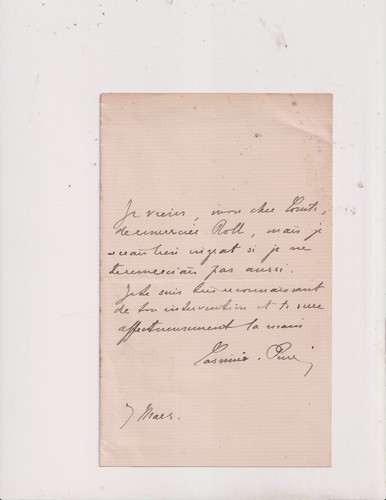 Je viens, mon cher
de remercier Roll, mais je
serais bien ingrat si je ne
te remerciais pas aussi.
Je te suis bien reconnaissant
de ton intervention et te serre
affectueusement la main
Casimir-Perier
7 Mars.